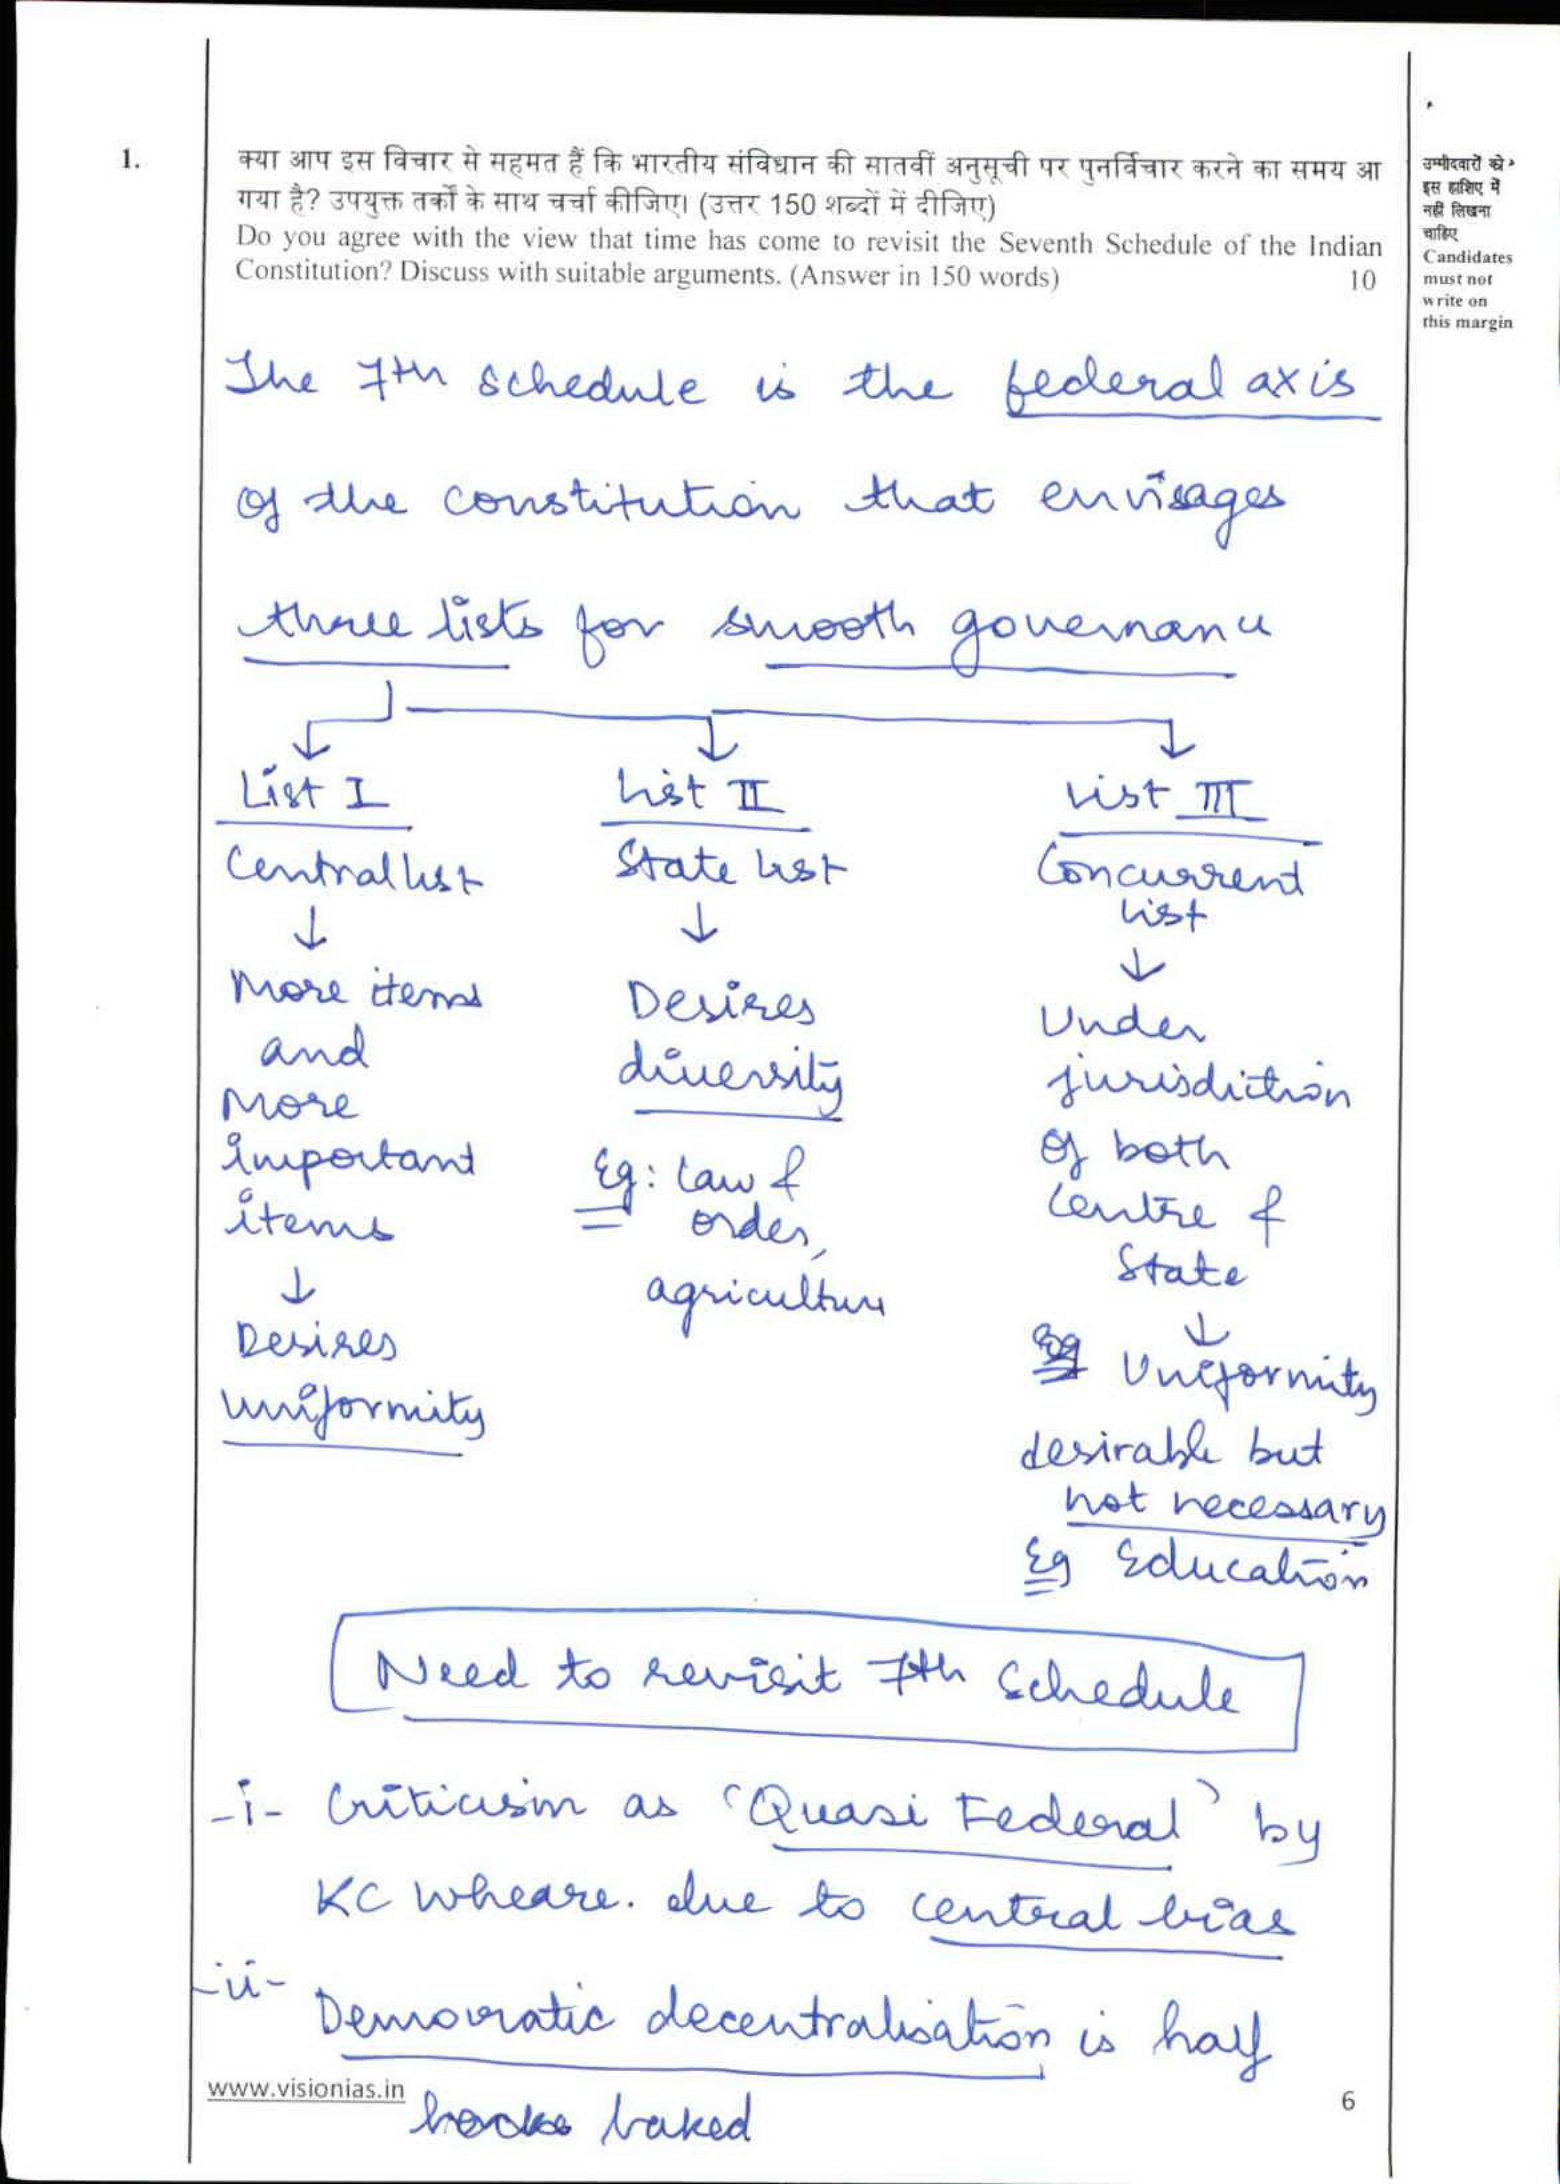 1.
क्या आप इस विचार से सहमत हैं कि भारतीय संविधान की सातवीं अनुसूची पर पुनर्विचार करने का समय आ
गया है? उपयुक्त तर्कों के साथ चर्चा कीजिए। (उत्तर 150 शब्दों में दीजिए)
Do you agree with the view that time has come to revisit the Seventh Schedule of the Indian
Constitution? Discuss with suitable arguments. (Answer in 150 words) 10
उम्मीदवारों को
इस हाशिए में
नहीं लिखना
चाहिए
Candidates
must not
write on
this margin
The 7th schedule is the federal axis
of the constitution that envisages
three lists for smooth governance
List I
Central list
More items
and
More
important
items
Desires
uniformity
List II
State list
Desires
diversity
Eg: Law &
order,
agriculture
List III
Concurrent
list
Under
jurisdiction
of both
Centre &
State
Uniformity
desirable but
not necessary
Eg Education
Need to revisit 7th Schedule
-i- Criticism as 'Quasi Federal' by
KC Wheare. due to central bias
-ii- Democratic decentralisation is half
baked
www.visionias.in
6